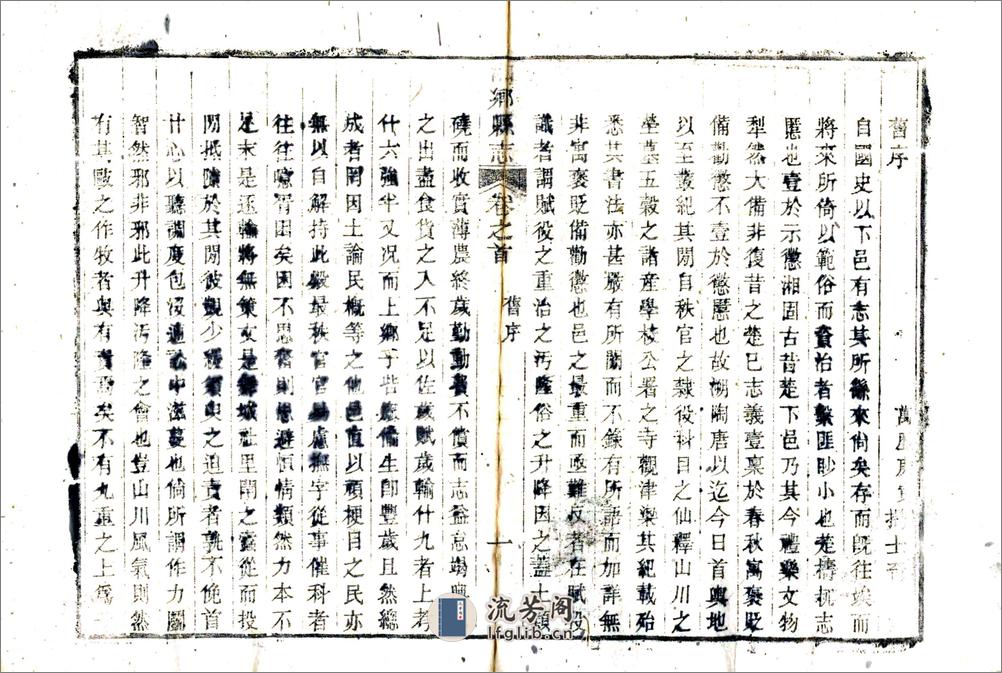 舊序
自國史以下邑有志其所緜來尙矣存而旣往埃而
將來所倚以範俗而資治者繫匪眇小也楚檮杌志
慝也壹於示懲湘固古昔楚下邑乃其今禮樂文物
犁然大備非復昔之楚巳志義壹稟於春秋寓褒貶
備勸懲不壹於懲慝也故溯陶唐以迄今日首輿地
以至叢紀其閒自秩官之隸役科目之仙釋山川之
塋墓五穀之諸產學校公署之寺觀津梁其紀載殆
悉其書法亦甚嚴有所闕而不錄有所語而加詳無
非寓褒貶備勸懲也邑之最重而亟難反者在賦役
識者謂賦役之重治之汚隆俗之升降因之蓋土
鄉縣志 卷之首 舊序 一
磽而收實薄農終歲勤動費不償而志益怠塲
之出盡食貨之入不足以佐歲賦歲輸什九者上考
什六強半又况而上鄉于皆生卽豐歲且然緫
成者罔因土論民槪等之他邑直以頑梗目之民亦
無以自解持此殿最秩官官易慮撫字從事催科者
往往嗌胥困矣困不思奮則思避恆情類然力本不
足末是逐輪將無策女是社里閈之蠹從而投
閒抵隙於其閒彼覬少緩須臾之迫責者孰不俛首
什心以聽調度包沒逋中滋蔓也倘所謂作力鬭
智然邪非邪此升降汚隆之會也豈山川風氣則然
有其敺之作牧者與有責焉矣不有九重之上爲
流芳閣
lfglib.cn